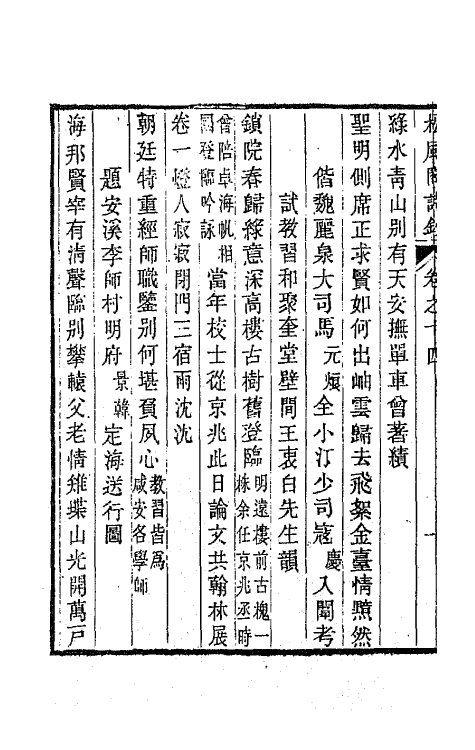 松風閣詩鈔 卷之十四 一
綠水青山別有天安撫單車曾著績
聖明側席正求賢如何出岫雲歸去飛絮金臺情黯然
偕魏麗泉大司馬元烺全小汀少司寇慶入闈考
試教習和聚奎堂壁間王衷白先生韻
鎖院春歸綠意深高樓古樹舊登臨明遠樓前古槐一株余任京兆丞時
曾陪卓海帆相國登臨吟詠當年校士從京兆此日論文共翰林展
卷一燈人寂寂閉門三宿雨沈沈
朝廷特重經師職鑒別何堪負夙心教習皆爲咸安各學師
題安溪李師村明府景韓定海送行圖
海邦賢宰有淸聲臨別攀轅父老情雉堞山光開萬戸